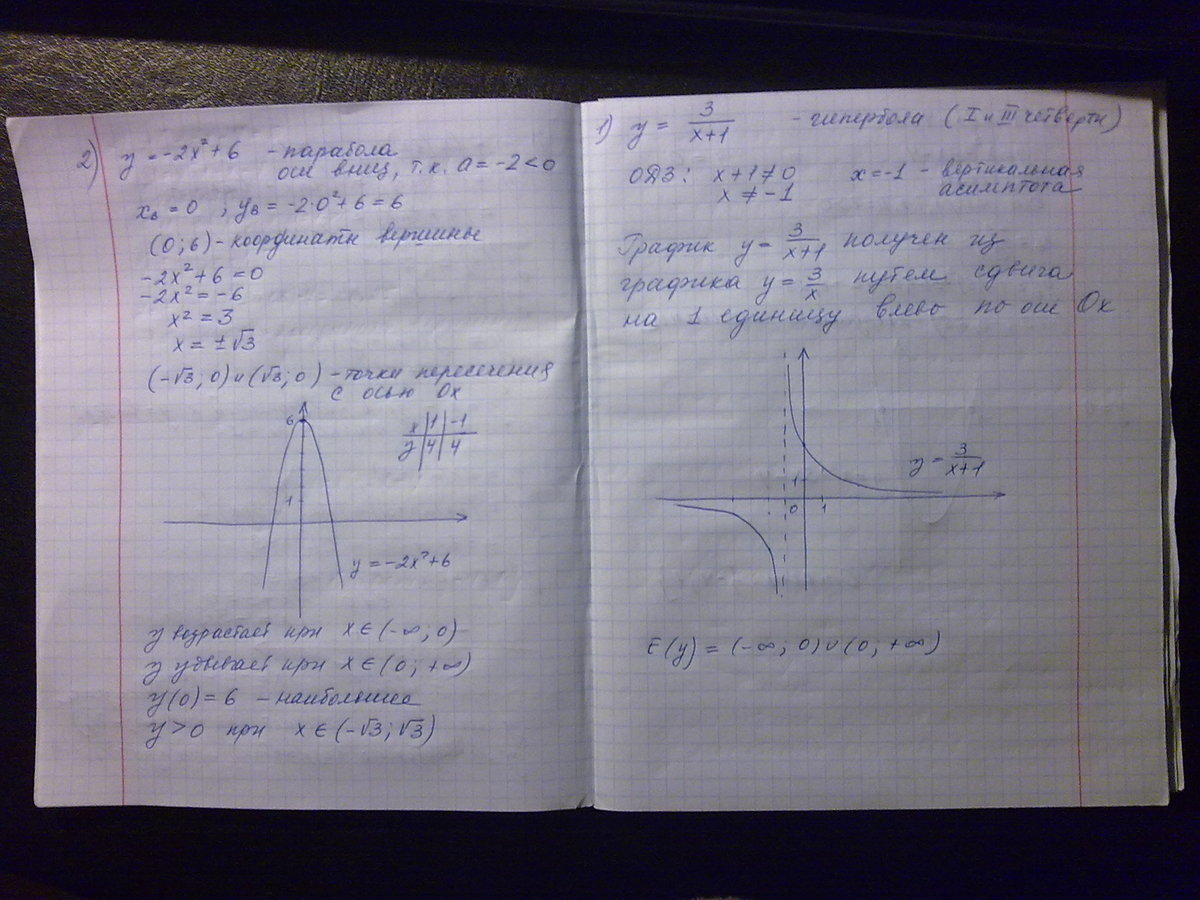 2) y = -2x² + 6 - парабола
оси вниз, т.к. a = -2 < 0
xв = 0 ; yв = -2·0² + 6 = 6
(0; 6) - координаты вершины
-2x² + 6 = 0
-2x² = -6
x² = 3
x = ±√3
(-√3; 0) и (√3; 0) - точки пересечения
с осью Ox
x | 1 | -1
y | 4 | 4
6
1
y = -2x² + 6
y возрастает при x ∈ (-∞; 0)
y убывает при x ∈ (0; +∞)
y(0) = 6 - наибольшее
y > 0 при x ∈ (-√3; √3)
1) y = 3/(x+1) - гипербола (I и III четверти)
ОДЗ: x + 1 ≠ 0 x = -1 - вертикальная
x ≠ -1 асимптота
График y = 3/(x+1) получен из
графика y = 3/x путем сдвига
на 1 единицу влево по оси Ox
y = 3/(x+1)
1
0 1
E(y) = (-∞; 0) ∪ (0; +∞)